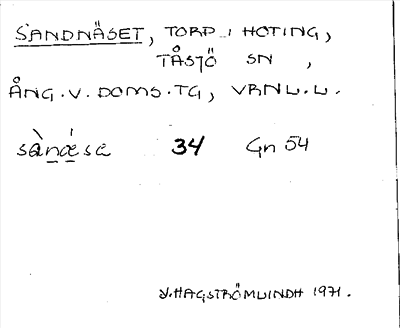 SANDNÄSET, TORP I HOTING,
TÅSJÖ SN,
ÅNG.V.DOMS.TG, VRNL.L.
sànǽse 34 Gn 54
Y.HAGSTRÖMLINDH 1971.